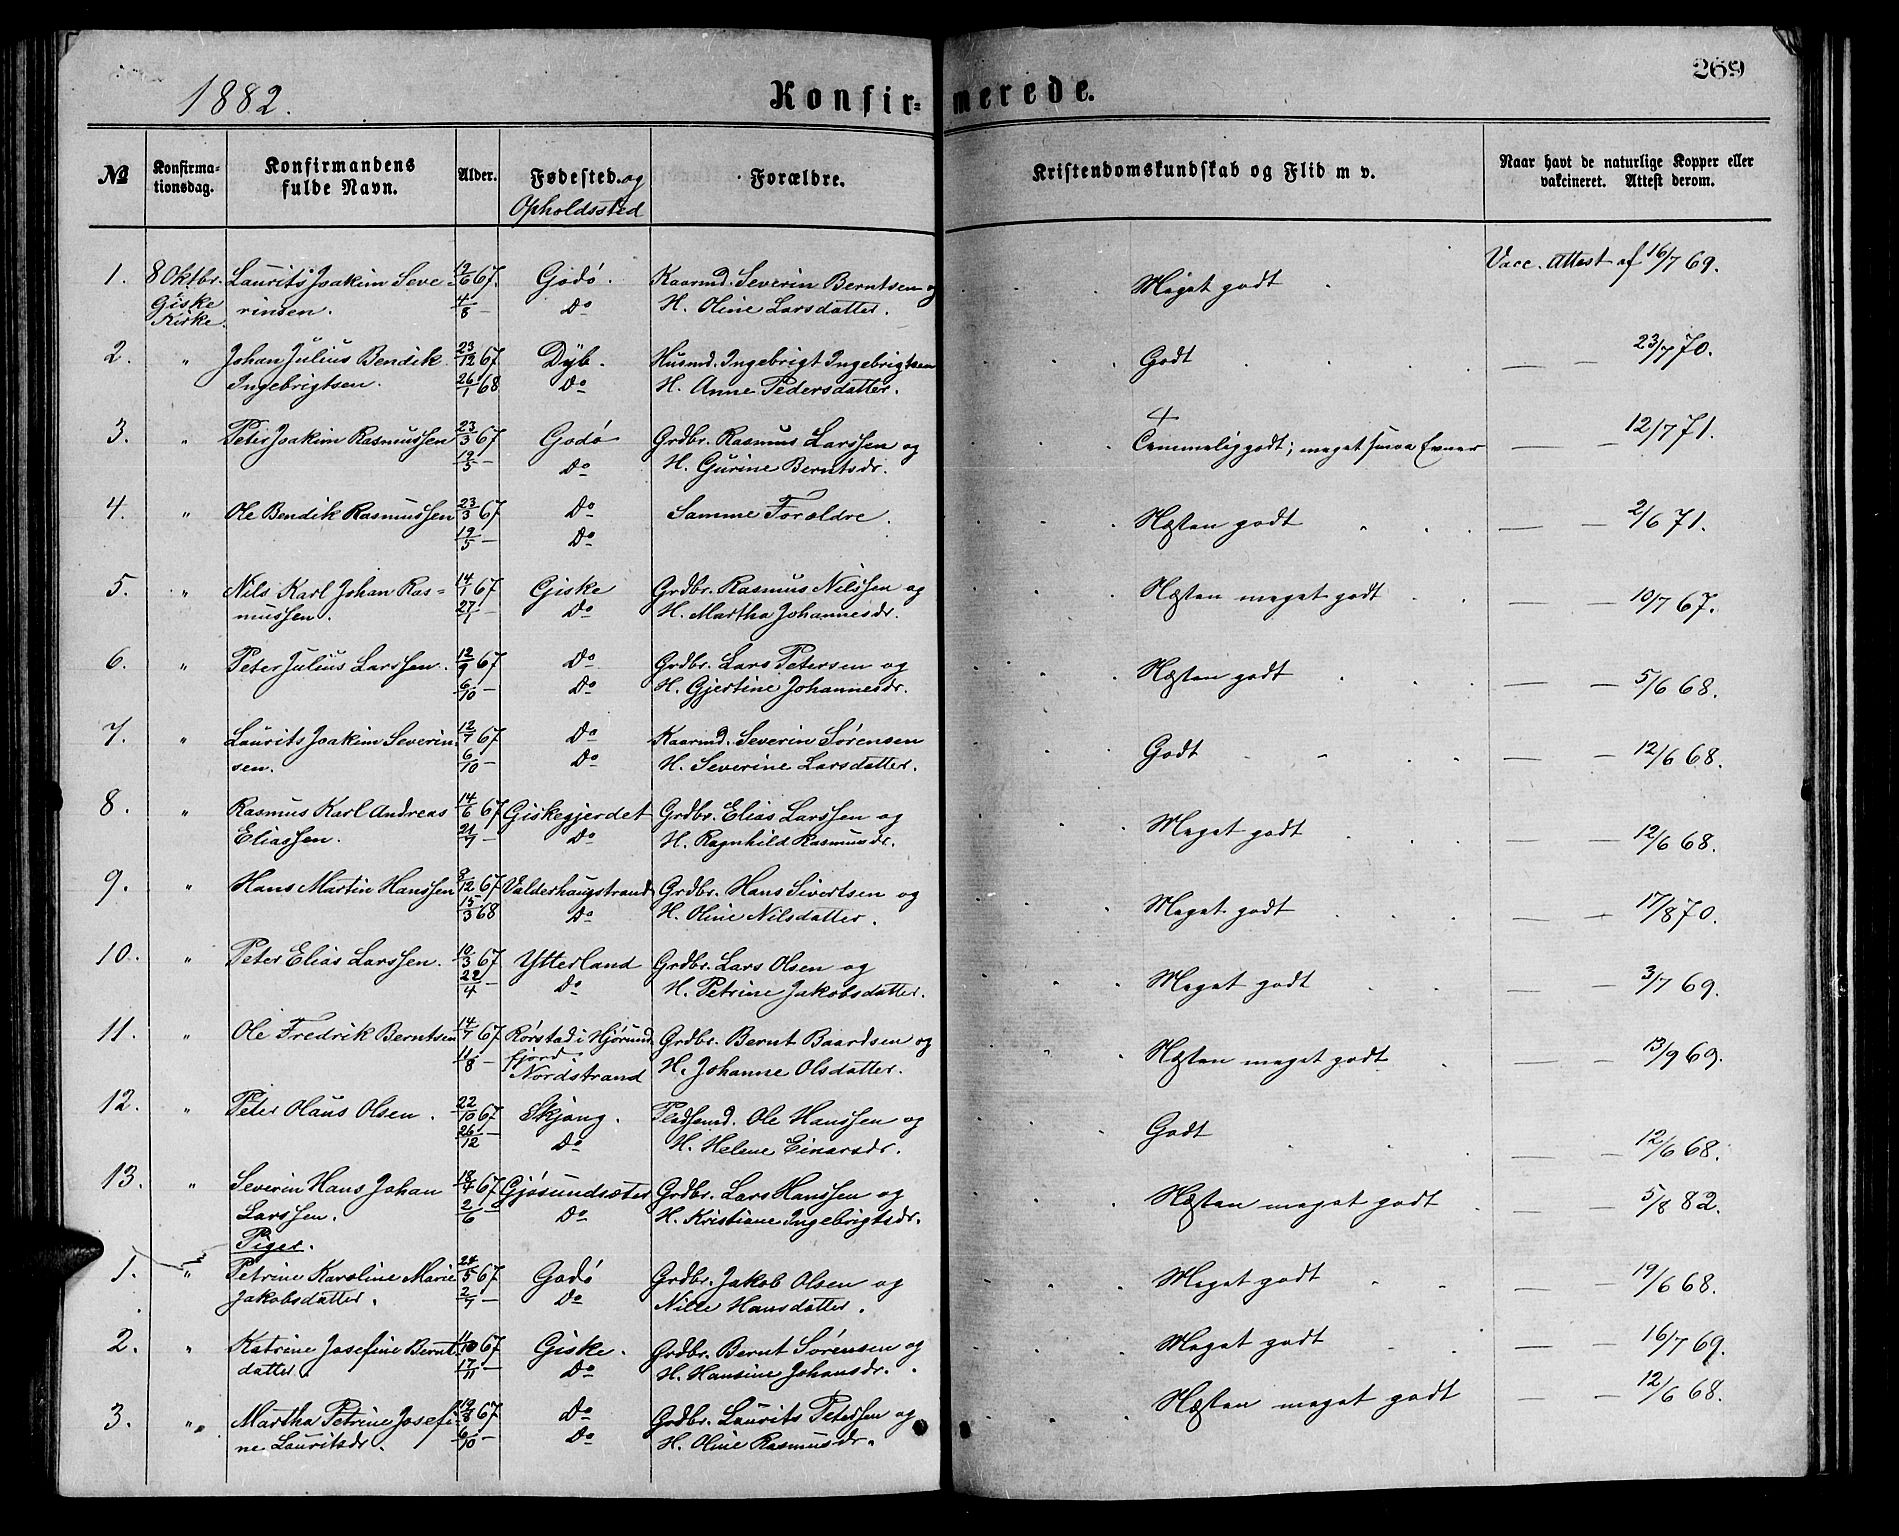 269
1882.
Konfir= merede.
№ Konfirma- Konfirmandens Alder. Fødested. og Forældre. Kristendomskundskab og Flid m v. Naar havt de naturlige Kopper eller
tionsdag. fulde Navn. Opholdssted vakcineret. Attest derom.
1. 8 Oktbr. Laurits Joakim Seve- 67. Godø. Kaarmd. Severin Berntsen og Meget godt Vacc. Attest af 16/7 69.
Giske rinsen. 4/8 — Do H. Oline Larsdatter.
Kirke.
2. " Johan Julius Bendik 23/12 67 Dyb. Husmd. Ingebrigt Ingebrigtsen Godt — — 23/7 70.
Ingebrigtsen. 26/1 68 Do H. Anne Pedersdatter.
3. " Peter Joakim Rasmussen 23/3 67 Godø Grdbr. Rasmus Larssen og Temmelig godt; meget smaa Evner — — 12/7 71.
19/5 — Do H. Gurine Berntsdr.
4. " Ole Bendik Rasmussen 23/3 67 Do Samme Forældre. Næsten godt — — 2/6 71.
19/5 — Do
5. " Nils Karl Johan Ras= 14/1 67 Giske Grdbr. Rasmus Nilssen og Næsten meget godt — — 10/7 67.
mussen. 27/1 — Do H. Martha Johannesdr.
6. " Peter Julius Larssen. 12/9 67 Do Grdbr. Lars Petersen og Næsten godt — — 5/6 68.
6/10 — Do H. Gjertine Johannesdr.
7. " Laurits Joakim Severin- 12/7 67 Do Kaarmd. Severin Sørensen Godt — — 12/6 68.
sen. 6/10 — Do H. Severine Larsdatter.
8. " Rasmus Karl Andreas 14/6 67 Giskegjerdet Grdbr. Elias Larssen og Meget godt — — 12/6 68.
Eliassen. 21/7 — Do H. Ragnhild Rasmusdr.
9. " Hans Martin Hanssen 8/12 67 Valderhaugstrand Grdbr. Hans Sivertsen og Meget godt — — 17/8 70.
15/3 68 Do H. Oline Nilsdatter.
10. " Peter Elias Larssen. 10/3 67 Ytterland Grdbr. Lars Olsen og Meget godt — — 3/7 69.
22/4 — Do H. Petrine Jakobsdatter.
11. " Ole Fredrik Berntsen 14/7 67 Rørstad i Hjørund- Grdbr. Bernt Baardsen og Næsten meget godt — — 13/9 69.
11/8 — fjord. H. Johanne Olsdatter.
Nordstrand
12. " Peter Olaus Olsen. 22/10 67 Skjong. Pladsmd. Ole Hanssen og Godt — — 12/6 68.
26/12 — Do H. Helene Einarsdr.
13. " Severin Hans Johan 18/4 67 Gjøsundsæter Grdbr. Lars Hanssen og Næsten meget godt — — 5/8 82.
Larssen. 2/6 — Do H. Kristiane Ingebrigtsdr.
Piger.
1. " Petrine Karoline Marie 67 Godø Grdbr. Jakob Olsen og Meget godt — — 19/6 68.
Jakobsdatter. 2/7 — Do Nille Hansdatter.
2. " Katrine Josefine Bernt- 11/10 67 Giske. Grdbr. Bernt Sørensen og Meget godt — — 16/7 69.
datter. 17/11 — Do H. Hansine Johansdr.
3. " Martha Petrine Josefi- 67 Do Grdbr. Laurits Peterssen og Næsten meget godt — — 12/6 68.
ne Lauritsdr. 6/10 — Do H. Oline Rasmusdr.